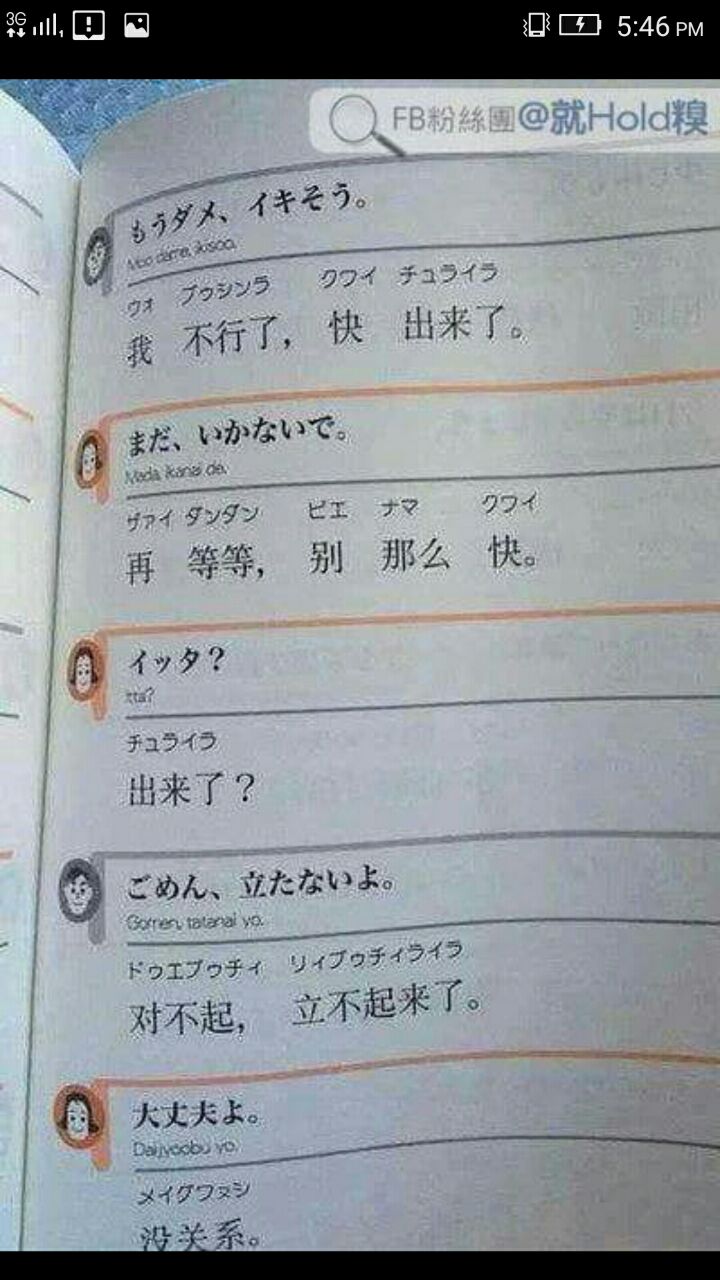 3G
1
5:46 PM
FB粉絲團@就Hold糗
もうダメ、イキそう。
Moo dame, ikisoo.
ウォ ブゥシンラ クワイ チュライラ
我 不行了， 快 出来了。
まだ、いかないで。
Mada, ikanai de.
ヴァイ ダンダン ビエ ナマ クワイ
再 等等， 别 那么 快。
イッタ？
Itta?
チュライラ
出来了？
ごめん、立たないよ。
Gomen, tatanai yo.
ドゥエブゥチィ リィブゥチィライラ
对不起， 立不起来了。
大丈夫よ。
Daijyoobu yo.
メイグワヌシ
没关系。